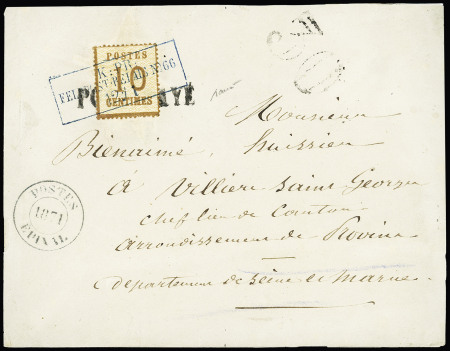 POSTES
10
CENTIMES
K. PR.
FELDPOST-RELAIS Nº 66
Monsieur
Bienaimé, huissier
à Villiers Saint Georges
chef lieu de Canton
arrondissement de Provins
département de Seine et Marne
POSTES
1871
EPINAL